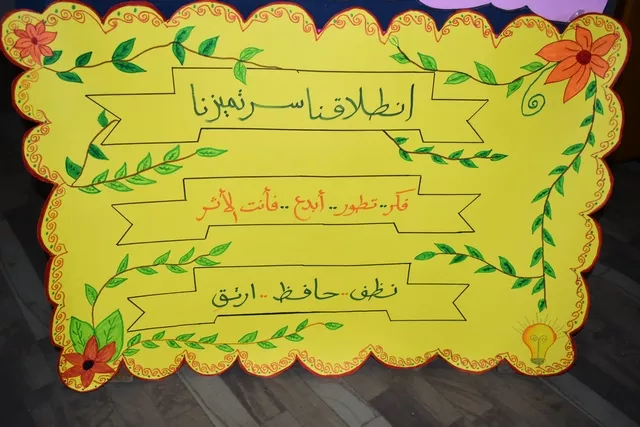 انطلاقنا سر تميزنا
فكر.. تطور.. أبدع.. فأنت الأثر
نظف.. حافظ.. ارتق